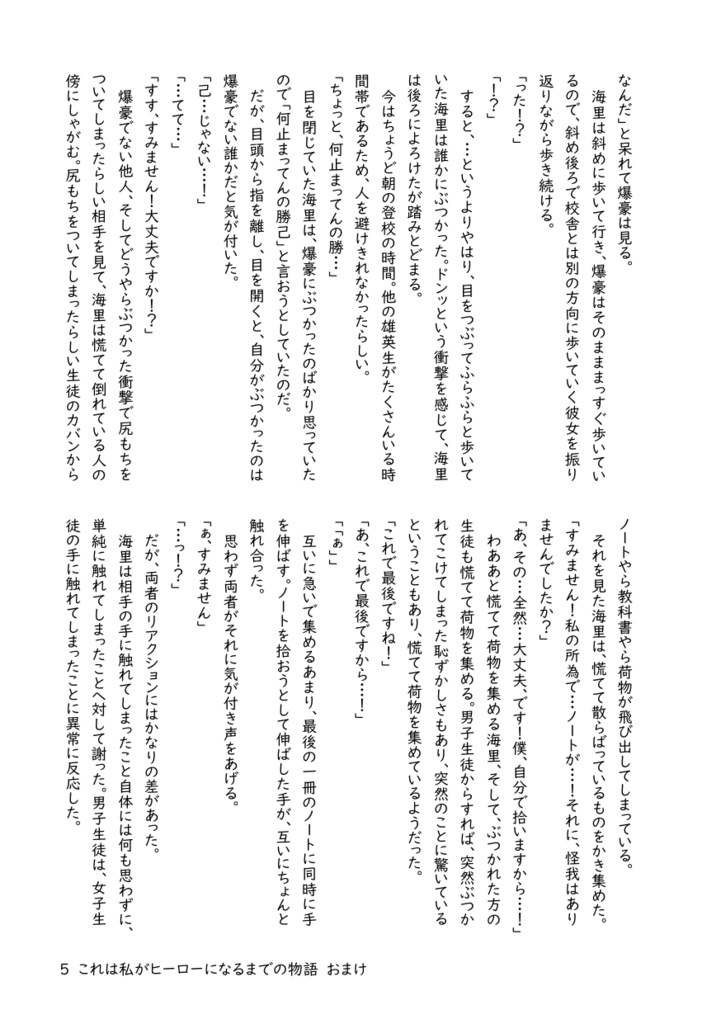 なんだ」と呆れて爆豪は見る。
海里は斜めに歩いて行き、爆豪はそのまままっすぐ歩いてい
るので、斜め後ろで校舎とは別の方向に歩いていく彼女を振り
返りながら歩き続ける。
「った！？」
「！？」
すると、…というよりやはり、目をつぶってふらふらと歩いて
いた海里は誰かにぶつかった。ドンッという衝撃を感じて、海里
は後ろによろけたが踏みとどまる。
今はちょうど朝の登校の時間。他の雄英生がたくさんいる時
間帯であるため、人を避けきれなかったらしい。
「ちょっと、何止まってんの勝…」
目を閉じていた海里は、爆豪にぶつかったのばかり思っていた
ので「何止まってんの勝己」と言おうとしていたのだ。
だが、目頭から指を離し、目を開くと、自分がぶつかったのは
爆豪でない誰かだと気が付いた。
「己…じゃない…！」
「…てて…」
「すす、すみません！大丈夫ですか！？」
爆豪でない他人、そしてどうやらぶつかった衝撃で尻もちを
ついてしまったらしい相手を見て、海里は慌てて倒れている人の
傍にしゃがむ。尻もちをついてしまったらしい生徒のカバンから
ノートやら教科書やら荷物が飛び出してしまっている。
それを見た海里は、慌てて散らばっているものをかき集めた。
「すみません！私の所為で…ノートが…！それに、怪我はあり
ませんでしたか？」
「あ、その…全然…大丈夫、です！僕、自分で拾いますから…！」
わああと慌てて荷物を集める海里、そして、ぶつかれた方の
生徒も慌てて荷物を集める。男子生徒からすれば、突然ぶつか
れてこけてしまった恥ずかしさもあり、突然のことに驚いている
ということもあり、慌てて荷物を集めているようだった。
「これで最後ですね！」
「あ、これで最後ですから…！」
「「ぁ」」
互いに急いで集めるあまり、最後の一冊のノートに同時に手
を伸ばす。ノートを拾おうとして伸ばした手が、互いにちょんと
触れ合った。
思わず両者がそれに気が付き声をあげる。
「ぁ、すみません」
「…っ！？」
だが、両者のリアクションにはかなりの差があった。
海里は相手の手に触れてしまったこと自体には何も思わずに、
単純に触れてしまったことへ対して謝った。男子生徒は、女子生
徒の手に触れてしまったことに異常に反応した。
5 これは私がヒーローになるまでの物語 おまけ